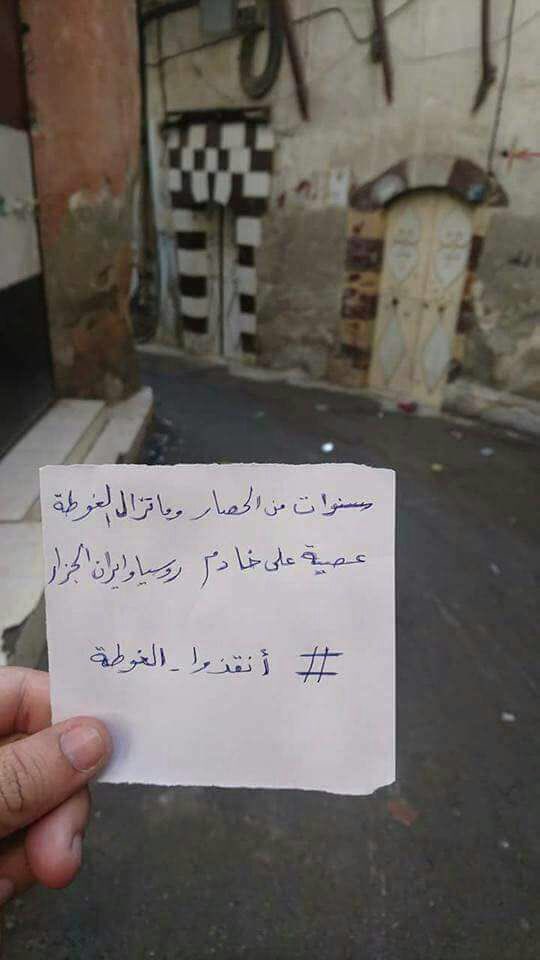 سنوات من الحصار وما تزال الغوطة
عصية على خادم روسيا وايران الجزار
# أنقذوا_الغوطة